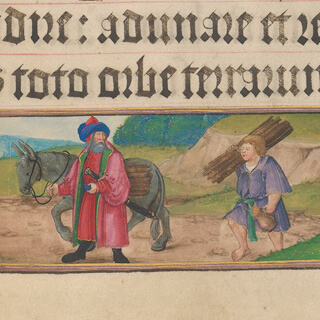 dire : adunare et re
s toto orbe terrarum